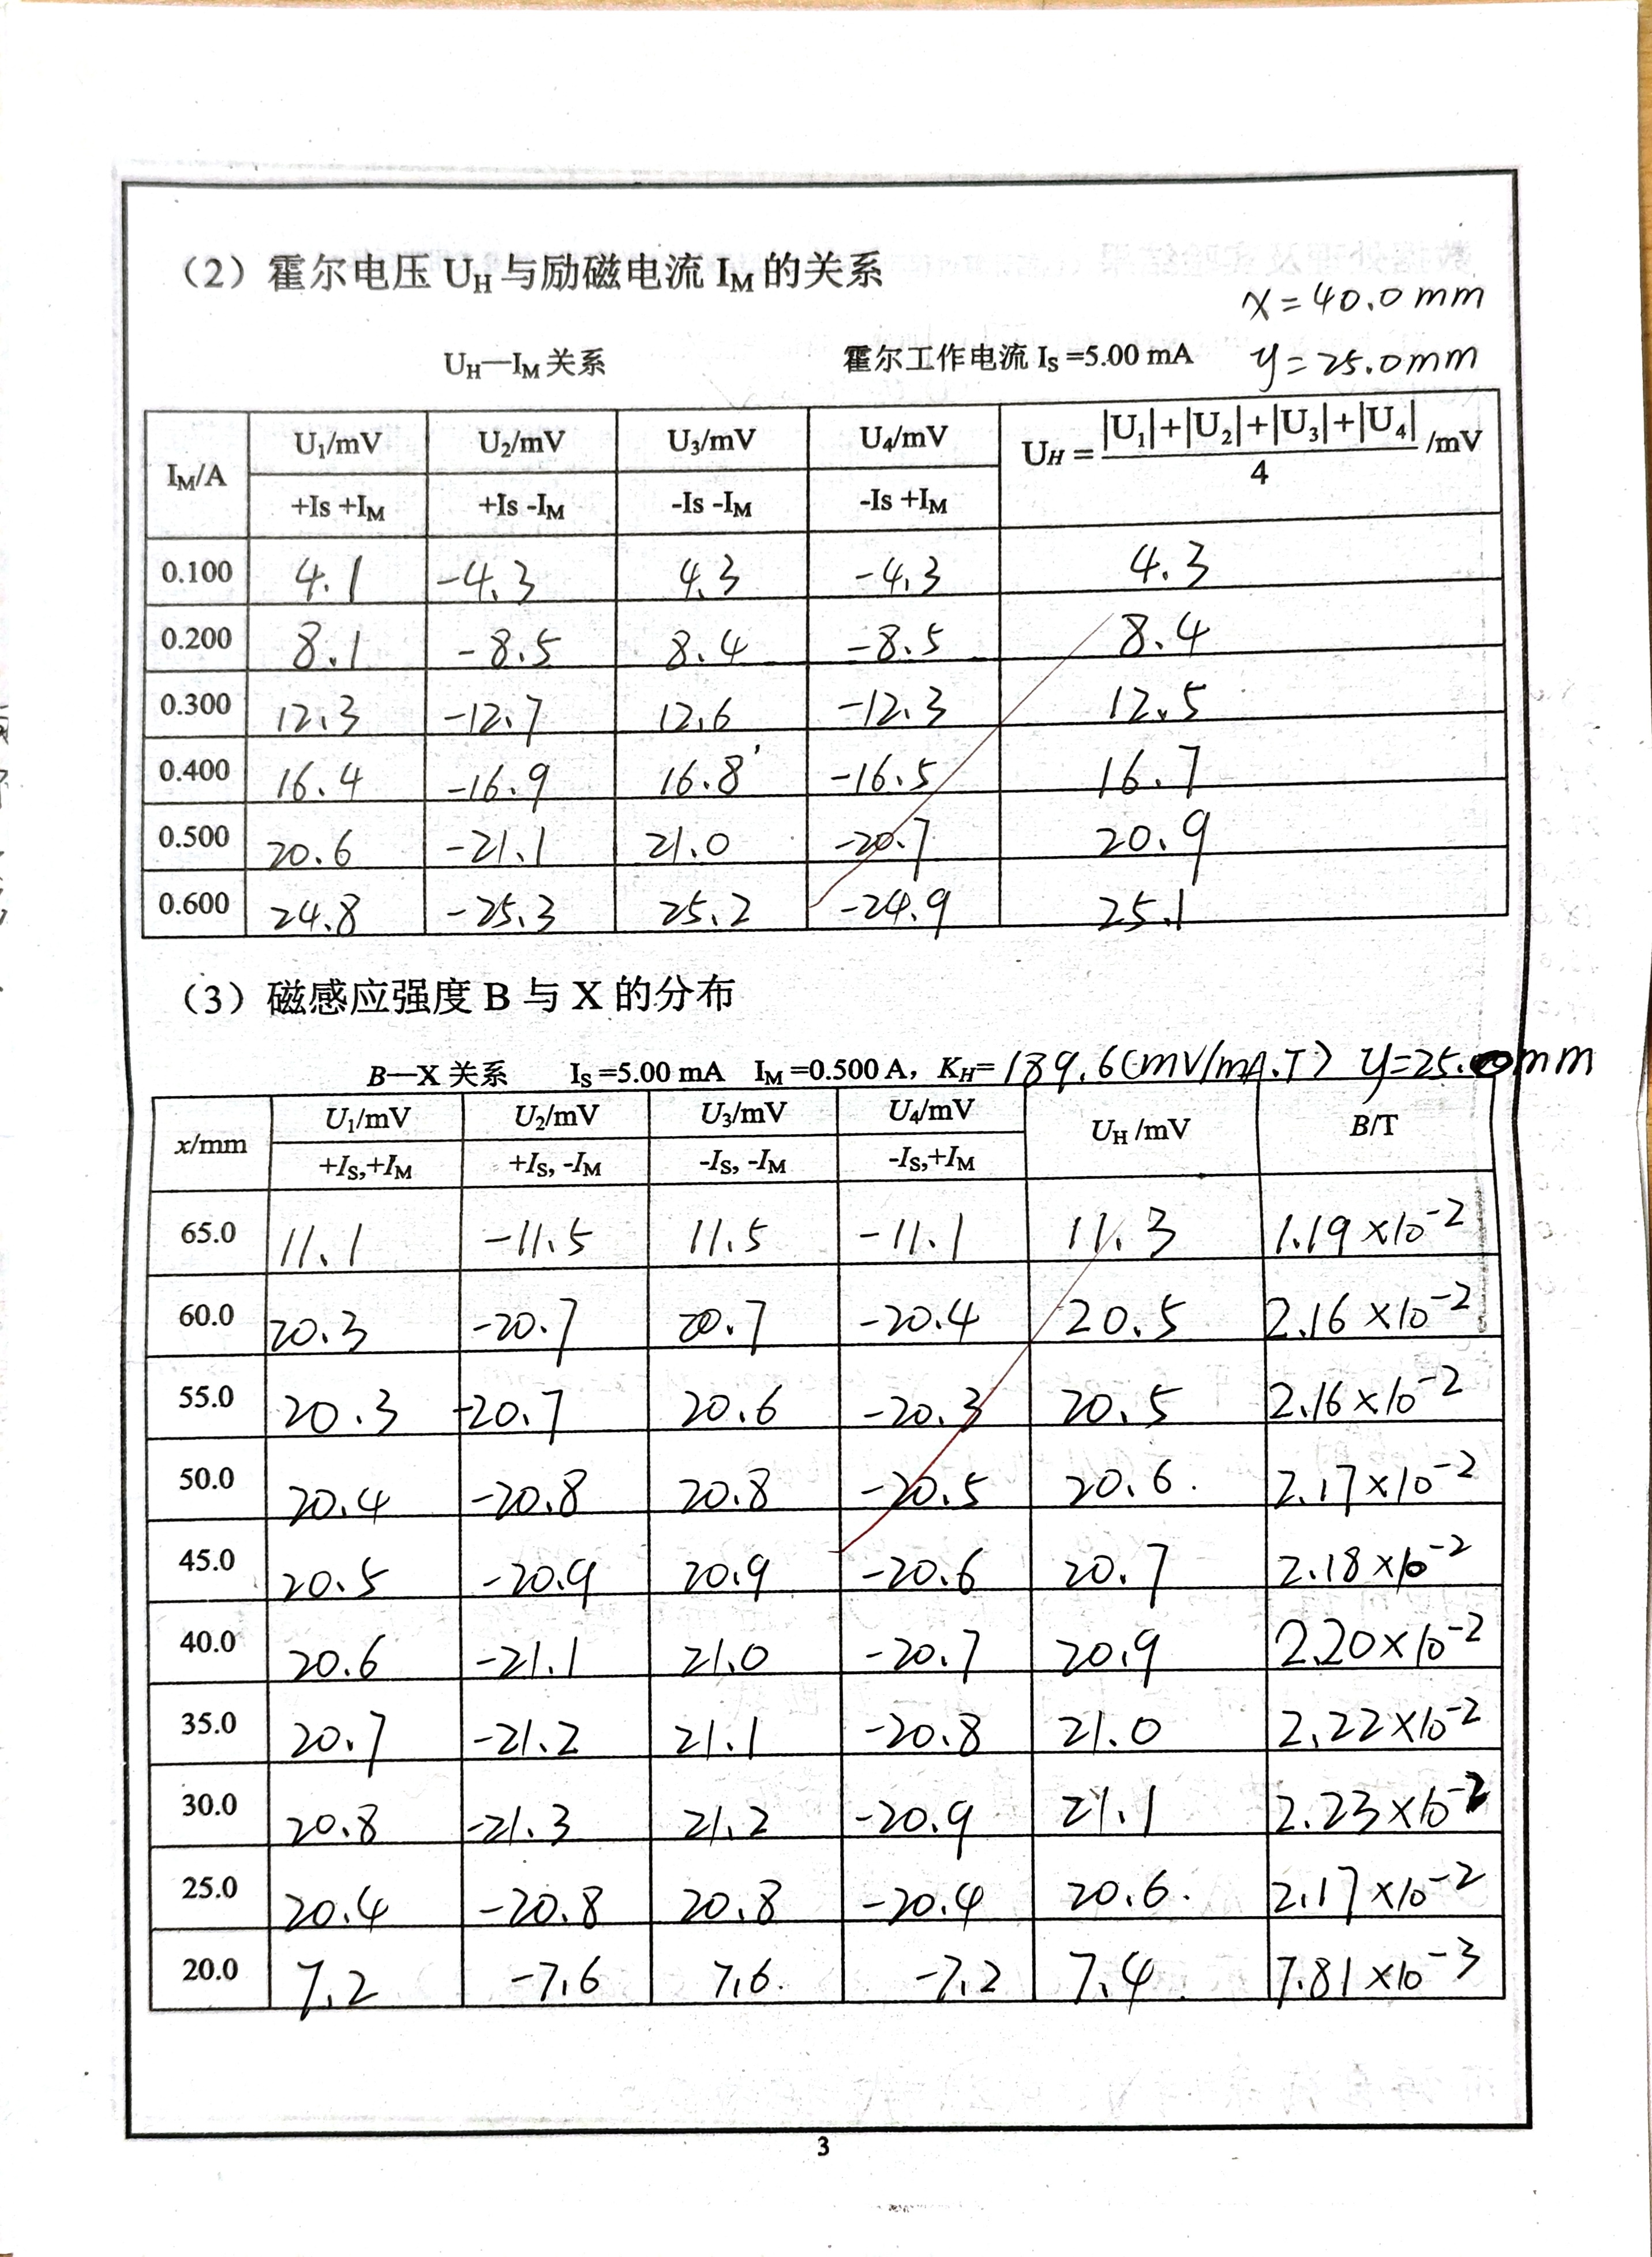 （2）霍尔电压 UH 与励磁电流 IM 的关系
x=40.0mm
UH—IM 关系 霍尔工作电流 IS =5.00 mA y=25.0mm
IM/A U1/mV U2/mV U3/mV U4/mV UH = |U1|+|U2|+|U3|+|U4| / 4 /mV
+Is +IM +Is -IM -Is -IM -Is +IM
0.100 4.1 -4.3 4.3 -4.3 4.3
0.200 8.1 -8.5 8.4 -8.5 8.4
0.300 12.3 -12.7 12.6 -12.3 12.5
0.400 16.4 -16.9 16.8 -16.5 16.7
0.500 20.6 -21.1 21.0 -20.7 20.9
0.600 24.8 -25.3 25.2 -24.9 25.1
（3）磁感应强度 B 与 X 的分布
B—X 关系 IS =5.00 mA IM =0.500 A，KH= 189.6(mV/mA.T) y=25.0mm
x/mm U1/mV U2/mV U3/mV U4/mV UH /mV B/T
+IS,+IM +IS, -IM -IS, -IM -IS,+IM
65.0 11.1 -11.5 11.5 -11.1 11.3 1.19×10-2
60.0 20.3 -20.7 20.7 -20.4 20.5 2.16×10-2
55.0 20.3 -20.7 20.6 -20.3 20.5 2.16×10-2
50.0 20.4 -20.8 20.8 -20.5 20.6. 2.17×10-2
45.0 20.5 -20.9 20.9 -20.6 20.7 2.18×10-2
40.0 20.6 -21.1 21.0 -20.7 20.9 2.20×10-2
35.0 20.7 -21.2 21.1 -20.8 21.0 2.22×10-2
30.0 20.8 -21.3 21.2 -20.9 21.1 2.23×10-2
25.0 20.4 -20.8 20.8 -20.4 20.6. 2.17×10-2
20.0 7.2 -7.6 7.6. -7.2 7.4. 7.81×10-3
3